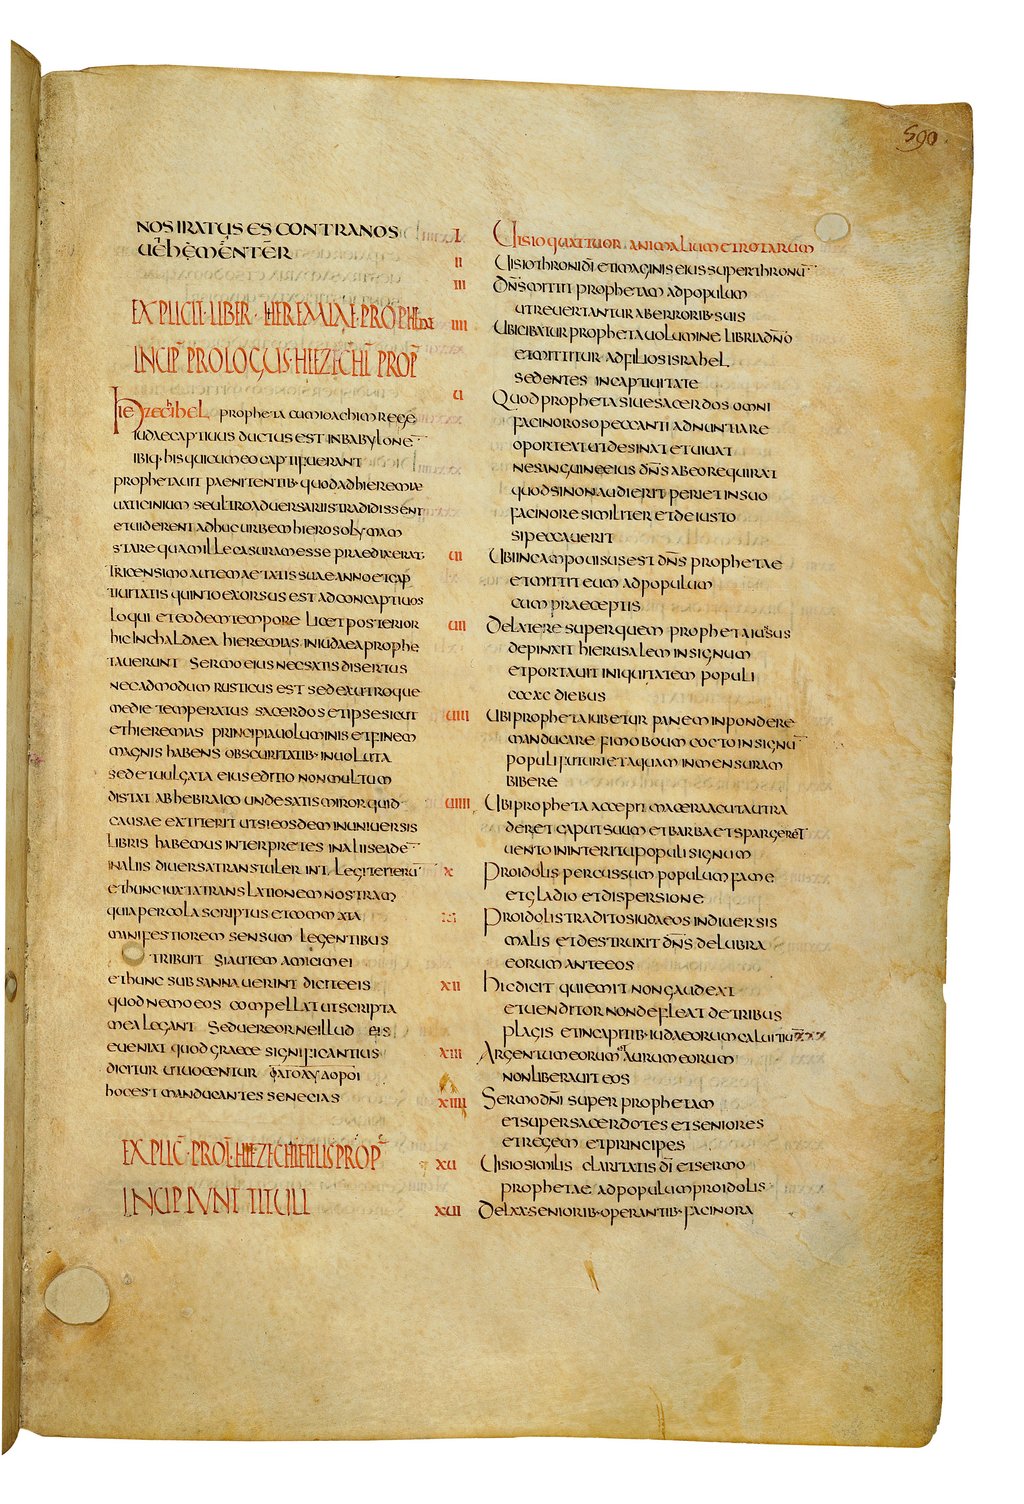 590.
NOS IRATUS ES CONTRA NOS
UEHEMENTER
EXPLICIT · LIBER · HIEREMIAE · PROPHETAE
INCIP̄ PROLOGUS · HIEZECHĪ PROP̄
Hiezechihel propheta cum ioachim rege
iudae captiuus ductus est in babylone
ibiq· his qui cum eo capti fuerant
prophetauit paenitentib· quod ad hieremiae
uaticinium se ultro aduersariis tradidissent
et uiderent adhuc urbem hierosolymam
stare quam ille casuram esse praedixerat
Tricensimo autem aetatis suae anno et cap
tiuitatis quinto exorsus est ad concaptiuos
loqui et eodem tempore licet posterior
hic in chaldaea hieremias in iudaea prophe
tauerunt sermo eius nec satis disertus
nec admodum rusticus est sed ex utroque
medie temperatus sacerdos et ipse sicut
et hieremias principia uoluminis et finem
magnis habens obscuritatib· inuoluta
sed et uulgata eius editio non multum
distat ab hebraico unde satis miror quid
causae extiterit ut si eosdem in uniuersis
libris habemus interpretes in aliis eade
in aliis diuersa transtulerint legite
et hunc iuxta translationem nostram
quia per cola scriptus et commata
manifestiorem sensum legentibus
tribuit si autem amici mei
et hunc subsannauerint dicite eis
quod nemo eos compellat ut scripta
mea legant sed uereor ne illud eis
eueniat quod graece significantius
dicitur ut uocentur
hoc est manducantes senecias
EXPLIC̄ · PROL̄ · HIEZECHIHELIS PROP̄
INCIPIUNT TITULI
I Uisio quattuor animalium et rotarum
II Uisio throni dī et imaginis eius super thronū
III Dn̄s mittit prophetam ad populum
ut reuertantur ab errorib· suis
IIII Ubi cibatur propheta uolumine libri a dn̄o
et mittitur ad filios israhel
sedentes in captiuitate
U Quod propheta siue sacerdos omni
facinoroso peccanti adnuntiare
oporteat ut desinat et uiuat
ne sanguine eius dn̄s ab eo requirat
quod si non audierit periet in suo
facinore similiter et de iusto
si peccauerit
UI Ubi in campo uisus est dn̄s prophetae
et mittit eum ad populum
cum praeceptis
UII De latere super quem propheta iussus
depinxit hierusalem in signum
et portauit iniquitatem populi
cccxc diebus
UIII Ubi propheta iubetur panem in pondere
manducare fimo boum cocto in signū
populi futuri et aquam in mensuram
bibere
UIIII Ubi propheta accepit macera acuta ut ra
deret caput suum et barba et spargeret
uento in interitu populi signum
X Pro idolis percussum populum fame
et gladio et dispersione
XI Pro idolis traditos iudaeos in diuersis
malis et destruxit dn̄s delubra
eorum ante eos
XII Hic dicit qui emit non gaudeat
et uenditor non defleat de tribus
plagis et in captiib· iudaeorum caluitiū
XIII Argentum eorum et aurum eorum
non liberauit eos
XIIII Sermo dn̄i super prophetam
et super sacerdotes et seniores
et regem et principes
XU Uisio similis claritatis dī et sermo
prophetae ad populum pro idolis
XUI De lxx seniorib· operantib· facinora